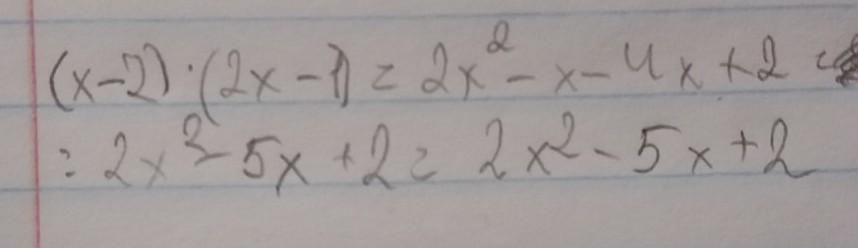 (x-2)·(2x-1)=2x²-x-4x+2=
=2x²-5x+2=2x²-5x+2